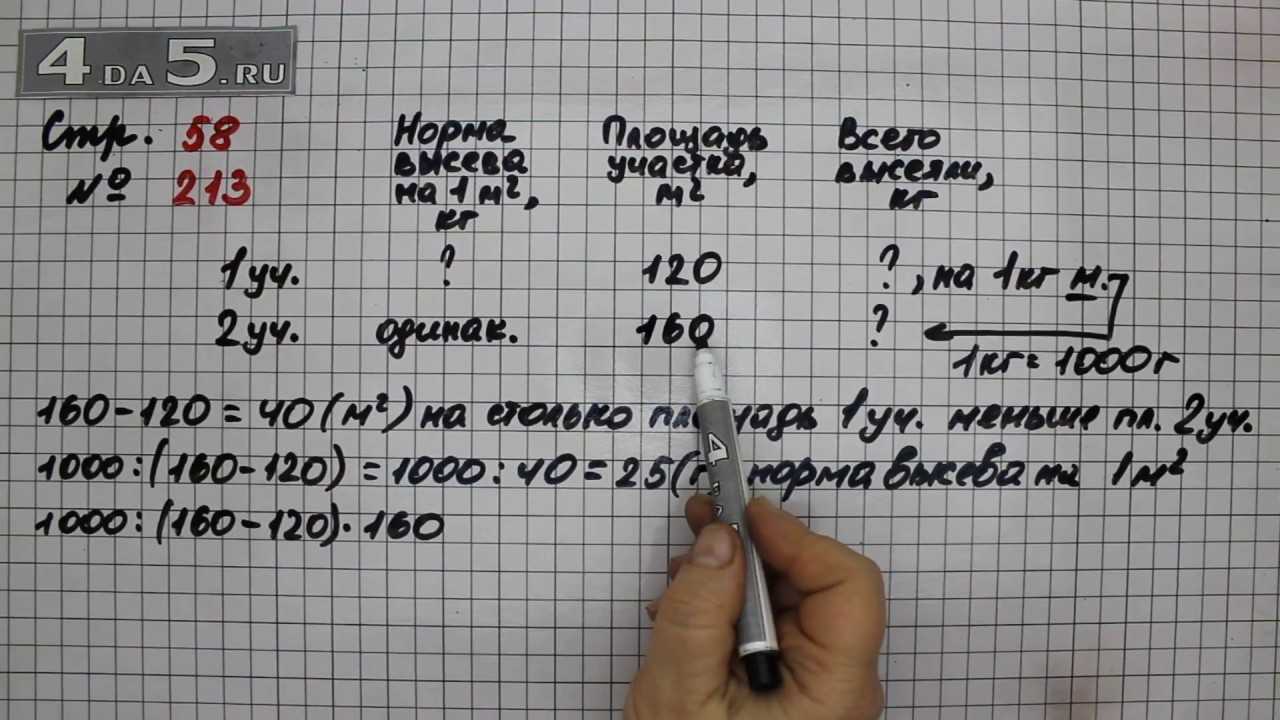 4DA5.RU
Стр. 58
№ 213
Норма высева на 1 м², кг
Площадь участка, м²
Всего высеяли, кг
1 уч. ? 120 ?, на 1 кг м.
2 уч. одинак. 160 ?
1 кг = 1000 г
160-120 = 40 (м²) на столько площадь 1 уч. меньше пл. 2 уч.
1000:(160-120) = 1000:40 = 25 (г) норма высева на 1 м²
1000:(160-120)·160
4